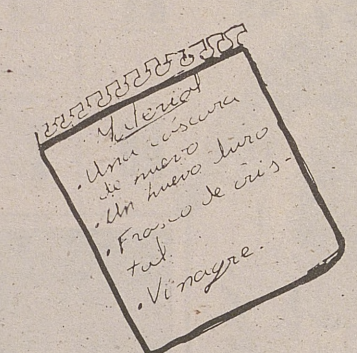 Material
• Una cáscara
de nuevo
• Un huevo duro
• Frasco de cris-
tal.
• Vinagre.